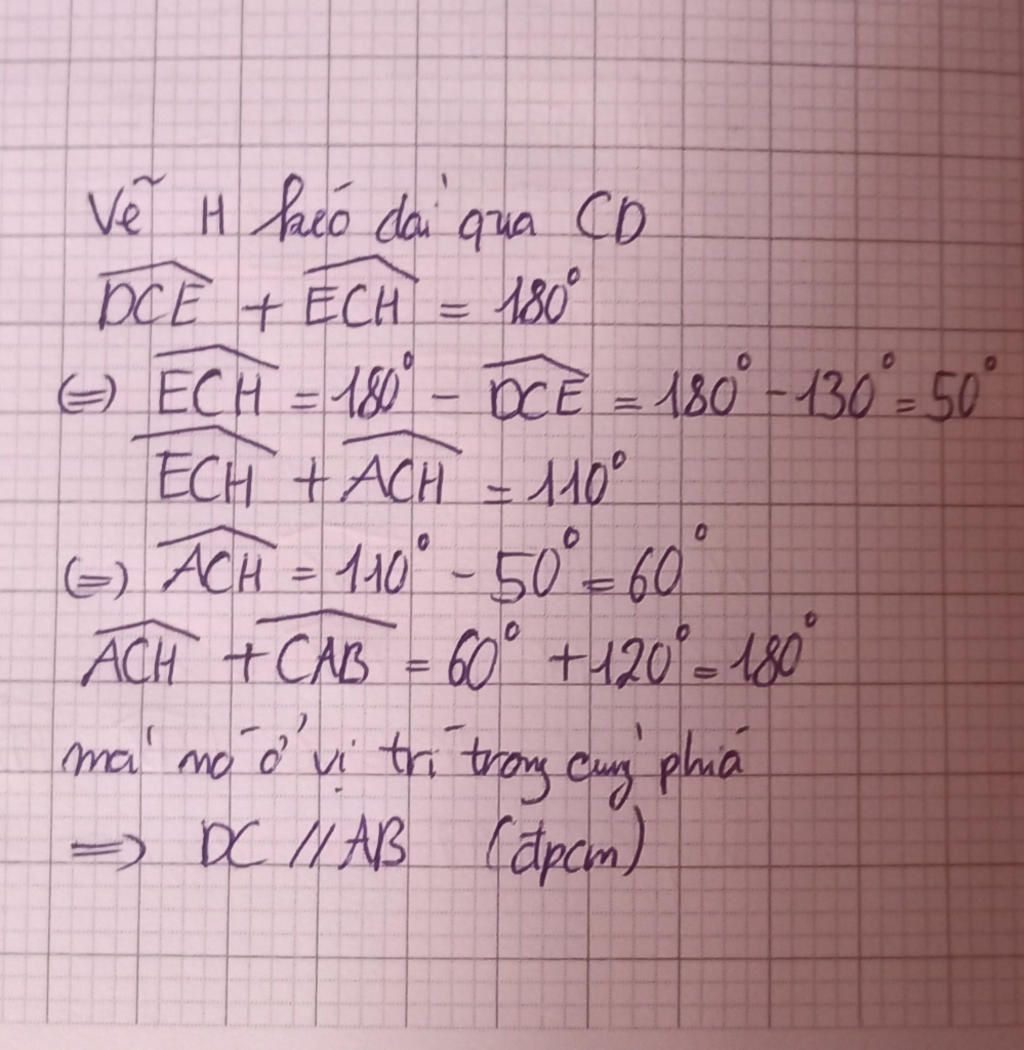 Vẽ H kéo dài qua CD
\widehat{DCE} + \widehat{ECH} = 180°
(=) \widehat{ECH} = 180° - \widehat{DCE} = 180° - 130° = 50°
\widehat{ECH} + \widehat{ACH} = 110°
(=) \widehat{ACH} = 110° - 50° = 60°
\widehat{ACH} + \widehat{CAB} = 60° + 120° = 180°
mà nó ở vị trí trong cùng phía
=> DC // AB (đpcm)